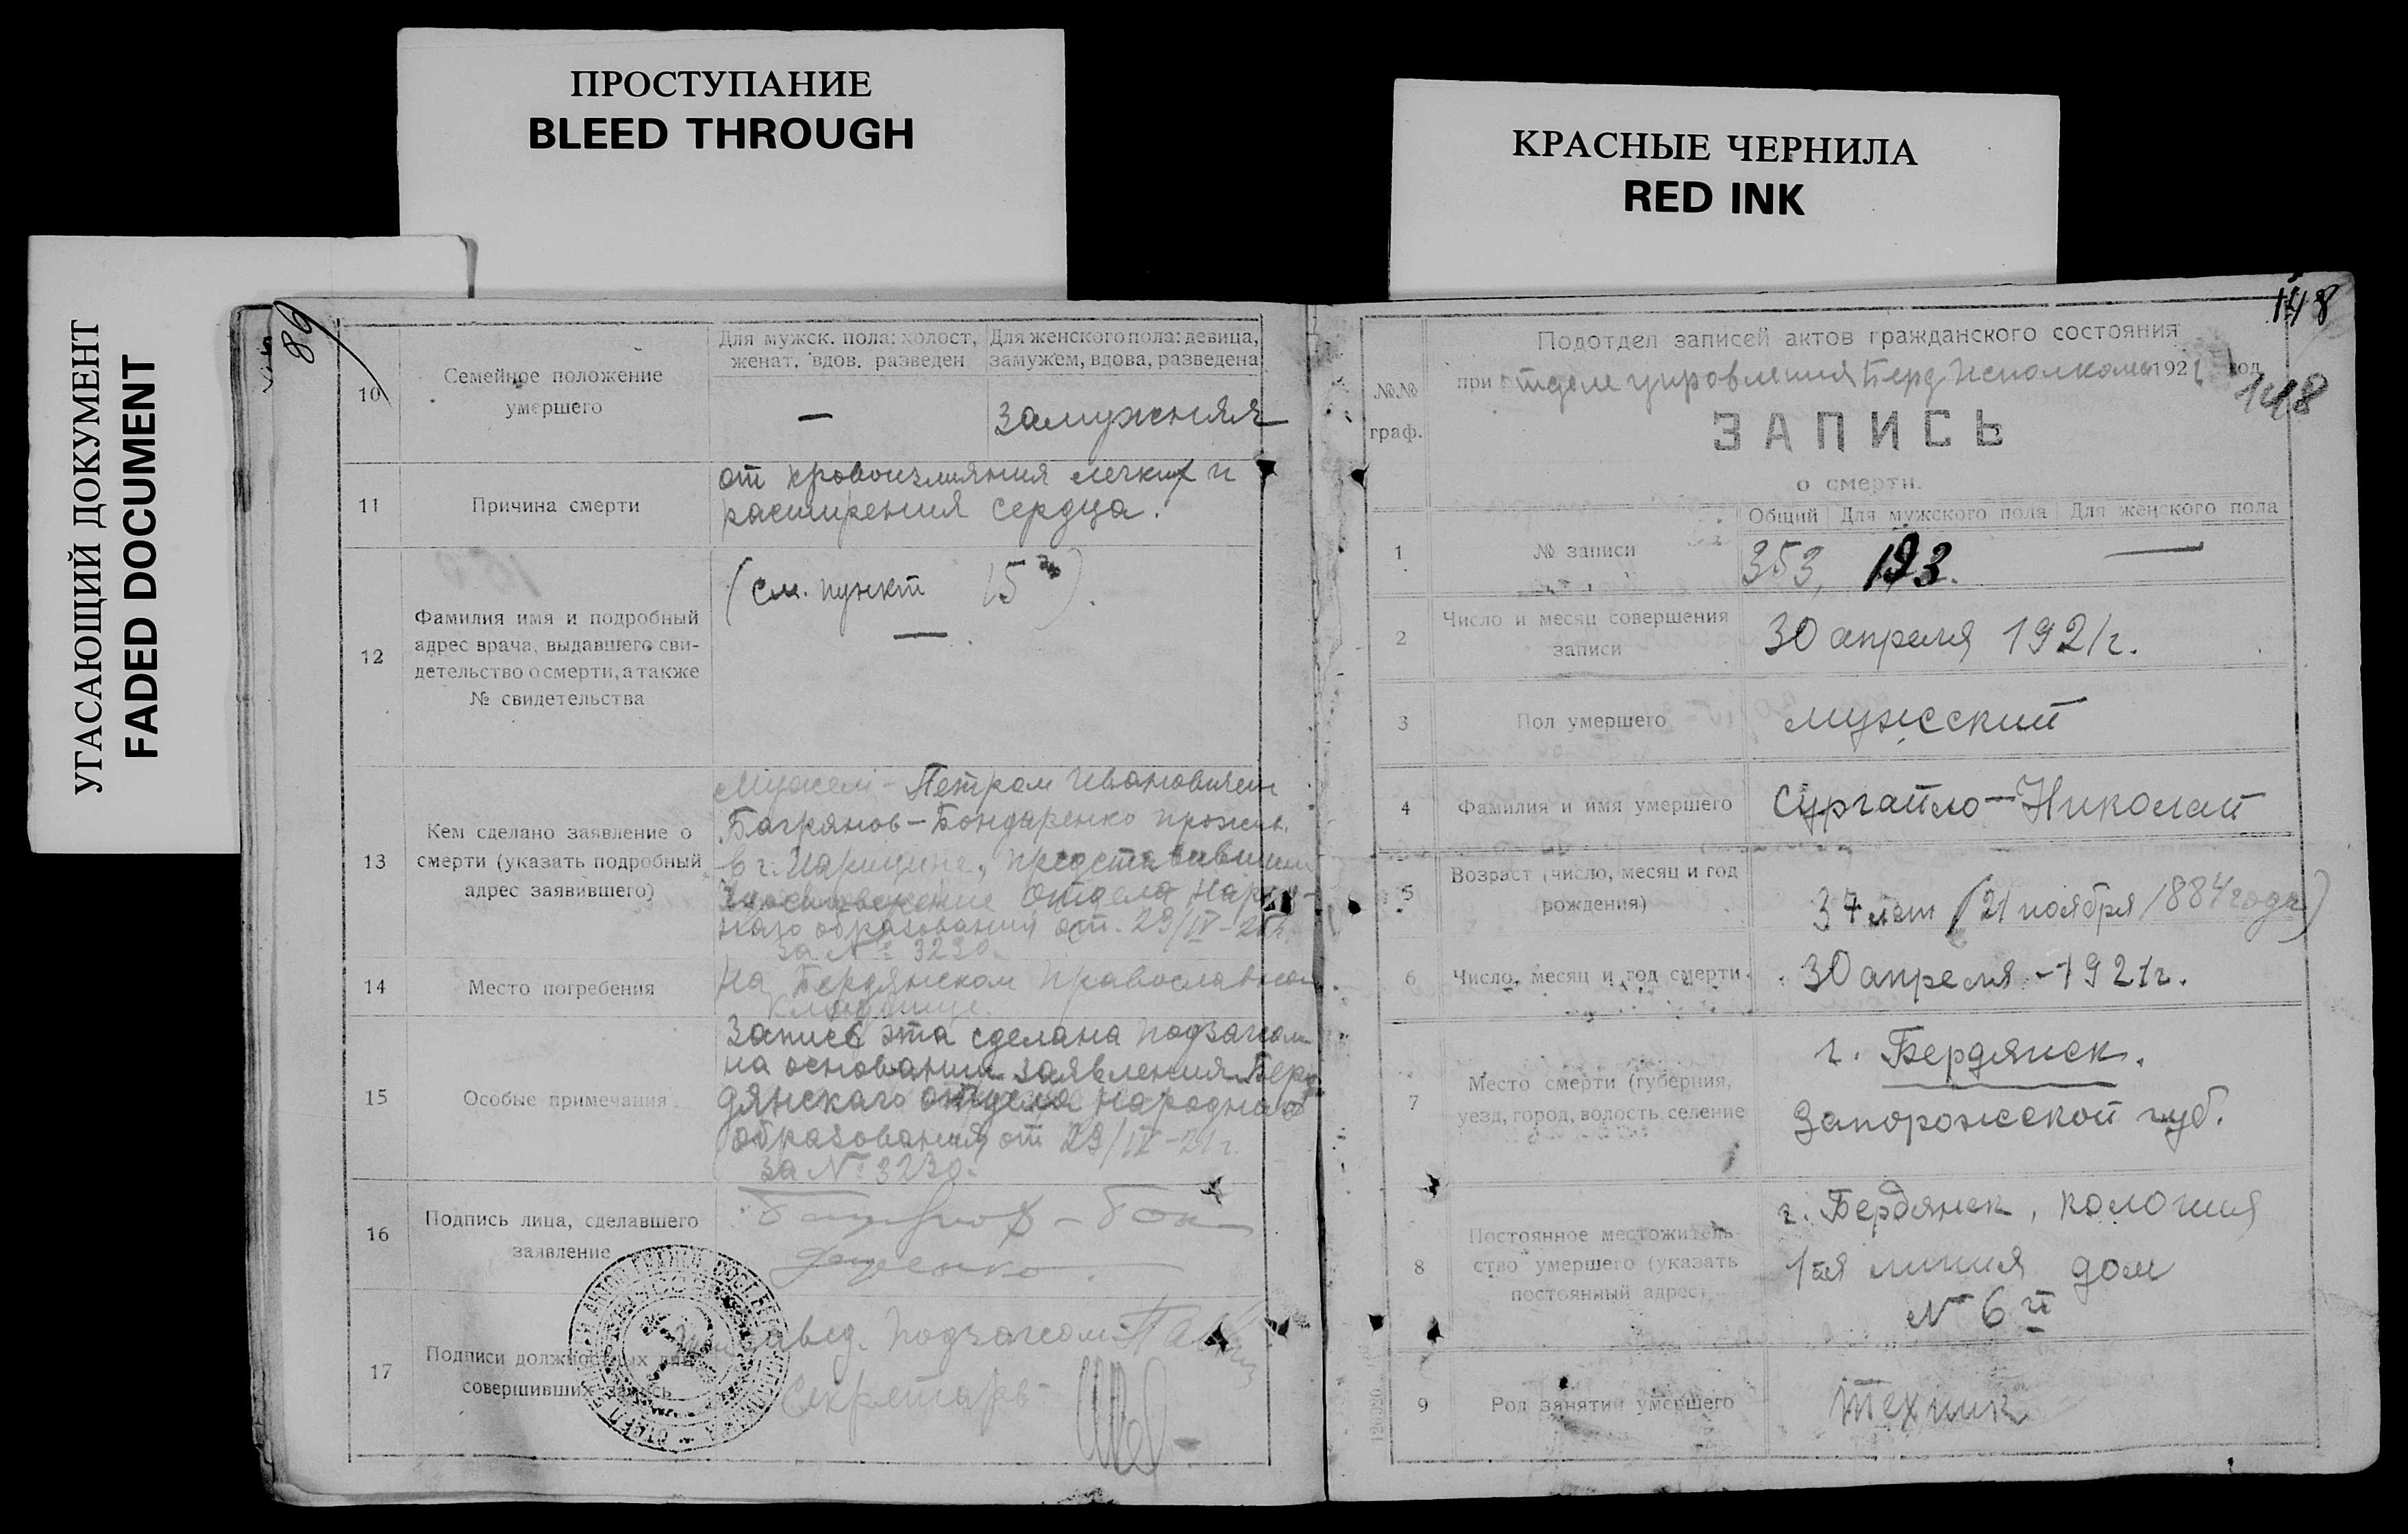 ПРОСТУПАНИЕ
BLEED THROUGH
КРАСНЫЕ ЧЕРНИЛА
RED INK
УГАСАЮЩИЙ ДОКУМЕНТ
FADED DOCUMENT
89
10
Семейное положение
умершего
Для мужск. пола: холост,
женат, вдов. разведен
Для женского пола: девица,
замужем, вдова, разведена
—
замужняя
11
Причина смерти
от кровоизлияния легких и
расширения сердца.
12
Фамилия имя и подробный
адрес врача, выдавшего сви-
детельство о смерти, а также
№ свидетельства
(см. пункт 15).
—
13
Кем сделано заявление о
смерти (указать подробный
адрес заявившего)
Мужем - Петром Ивановичем
Багрянов - Бондаренко прожив.
в г. Царицине, представившим
Удостоверение отдела Народ-
наго образования от 29/IV-21г.
за № 3230.
14
Место погребения
На Бердянском Православном
Кладбище.
15
Особые примечания
Запись эта сделана Подзагсом
на основании заявления Бер-
дянскаго отдела народнаго
образования от 29/IV-21г.
за № 3230.
16
Подпись лица, сделавшего
заявление
17
Подписи должностных лиц
совершивших запись
завед. Подзагсом
Секретарь
148
№№
граф.
Подотдел записей актов гражданского состояния
при отделе управления Берд. Исполкома 1921 год
148
ЗАПИСЬ
о смерти.
Общий Для мужского пола Для женского пола
1
№ записи
353, 193. —
2
Число и месяц совершения
записи
30 апреля 1921г.
3
Пол умершего
мужский
4
Фамилия и имя умершего
Сургайло - Николай
5
Возраст (число, месяц и год
рождения)
37 лет (21 ноября 1884 года)
6
Число, месяц и год смерти
30 апреля - 1921г.
7
Место смерти (губерния,
уезд, город, волость, селение
г. Бердянск.
Запорожской губ.
8
Постоянное местожитель-
ство умершего (указать
постоянный адрес)
г. Бердянск, колония
1ая линия дом
№ 6й
9
Род занятий умершего
Техник